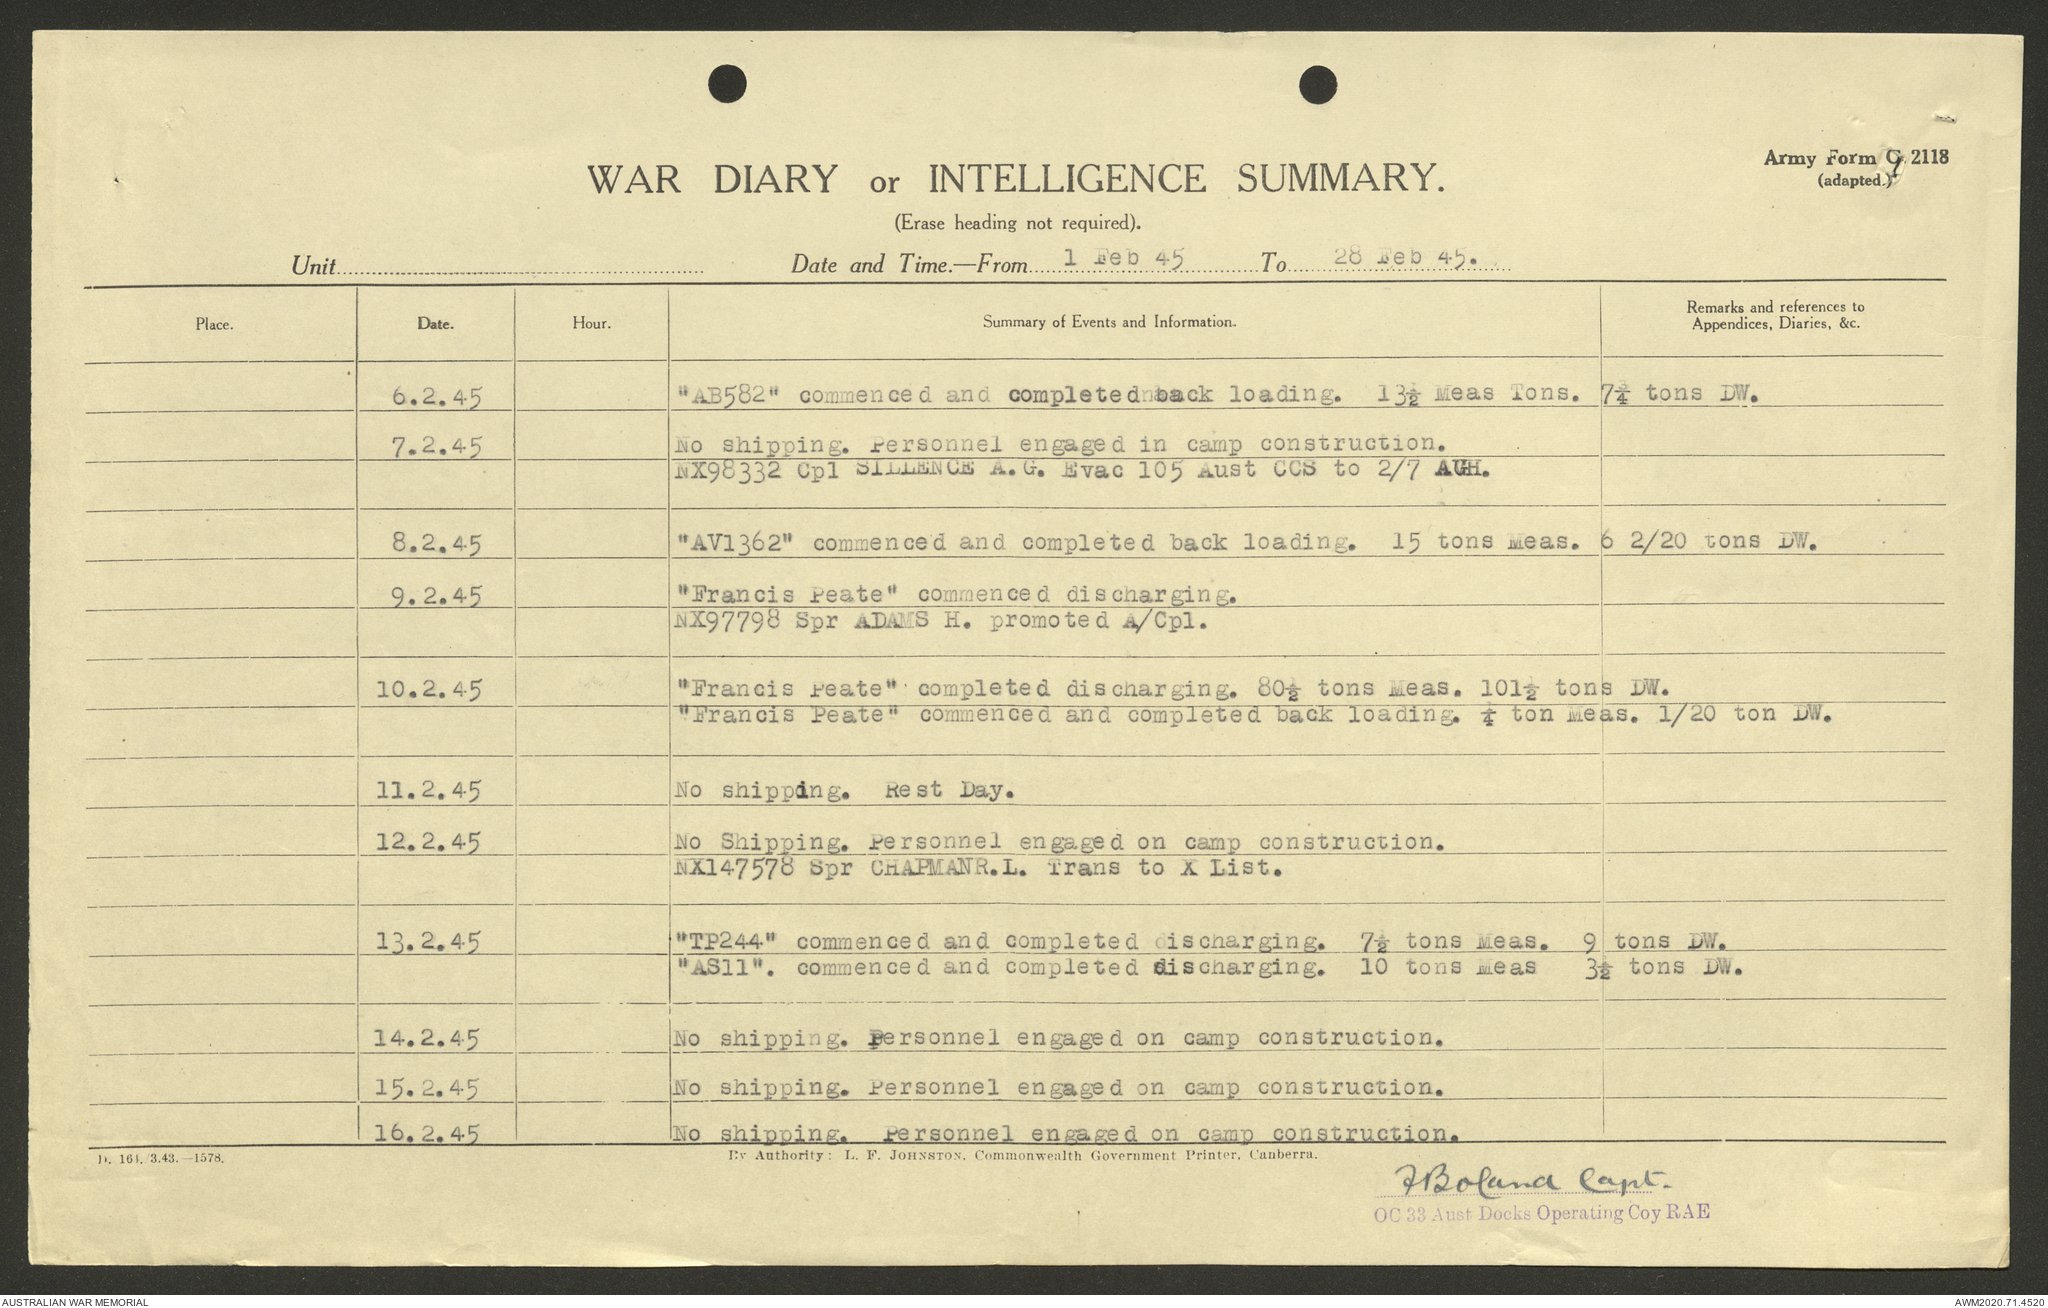 Army Form C. 2118
(adapted.)
9
WAR DIARY or INTELLIGENCE SUMMARY.
(Erase heading not required).
Unit Date and Time.—From 1 Feb 45 To 28 Feb 45.
Place. Date. Hour. Summary of Events and Information. Remarks and references to Appendices, Diaries, &c.
6.2.45 "AB582" commenced and completed back loading. 13½ Meas Tons. 7¾ tons DW.
7.2.45 No shipping. Personnel engaged in camp construction.
NX98332 Cpl SILLENCE A.G. Evac 105 Aust CCS to 2/7 AGH.
8.2.45 "AV1362" commenced and completed back loading. 15 tons Meas. 6 2/20 tons DW.
9.2.45 "Francis Peate" commenced discharging.
NX97798 Spr ADAMS H. promoted A/Cpl.
10.2.45 "Francis Peate" completed discharging. 80½ tons Meas. 101½ tons DW.
"Francis Peate" commenced and completed back loading. ¼ ton Meas. 1/20 ton DW.
11.2.45 No shipping. Rest Day.
12.2.45 No Shipping. Personnel engaged on camp construction.
NX147578 Spr CHAPMANR.L. Trans to X List.
13.2.45 "TP244" commenced and completed discharging. 7½ tons Meas. 9 tons DW.
"AS11". commenced and completed discharging. 10 tons Meas 3½ tons DW.
14.2.45 No shipping. Personnel engaged on camp construction.
15.2.45 No shipping. Personnel engaged on camp construction.
16.2.45 No shipping. Personnel engaged on camp construction.
D. 161/3.43.—1578. By Authority: L. F. JOHNSTON, Commonwealth Government Printer, Canberra.
FBoland Capt.
OC 33 Aust Docks Operating Coy RAE
AUSTRALIAN WAR MEMORIAL AWM2020.71.4520